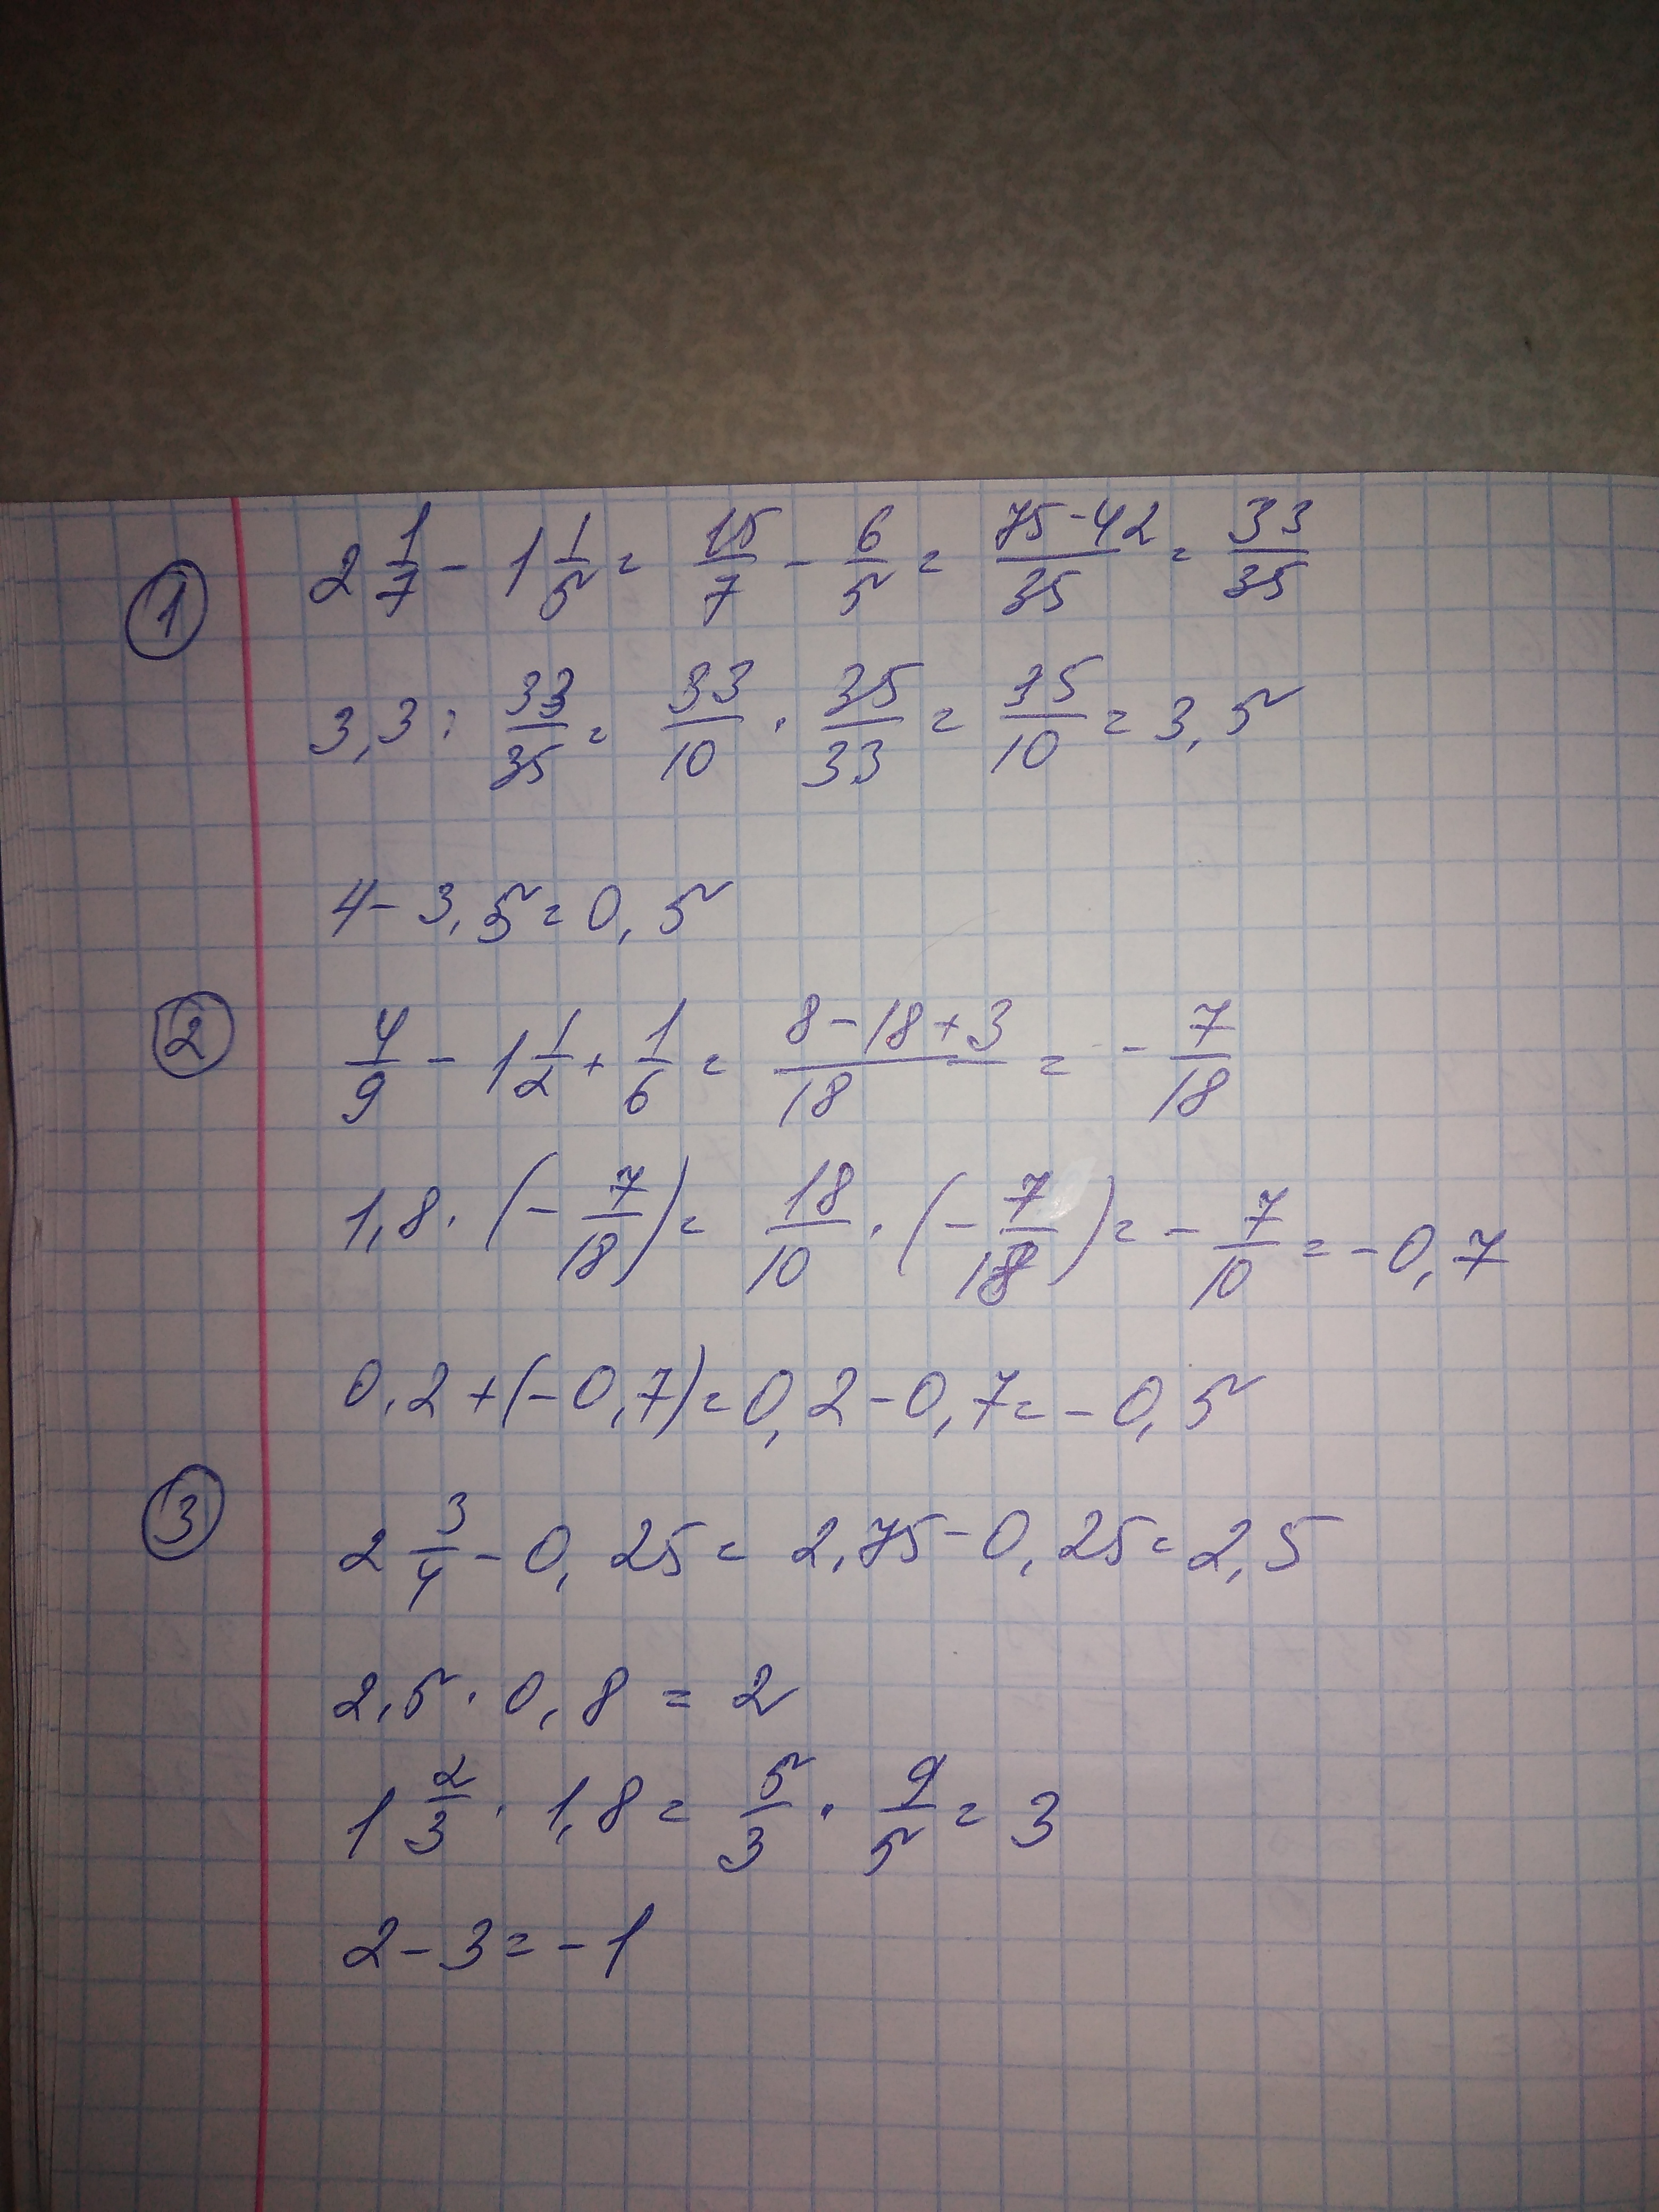 ① 2 1/7 - 1 1/5 = 15/7 - 6/5 = (75-42)/35 = 33/35
3,3 : 33/35 = 33/10 · 35/33 = 35/10 = 3,5
4 - 3,5 = 0,5
② 4/9 - 1 1/2 + 1/6 = (8-18+3)/18 = - 7/18
1,8 · (- 7/18) = 18/10 · (- 7/18) = - 7/10 = - 0,7
0,2 + (- 0,7) = 0,2 - 0,7 = - 0,5
③ 2 3/4 - 0,25 = 2,75 - 0,25 = 2,5
2,5 · 0,8 = 2
1 2/3 · 1,8 = 5/3 · 9/5 = 3
2 - 3 = - 1